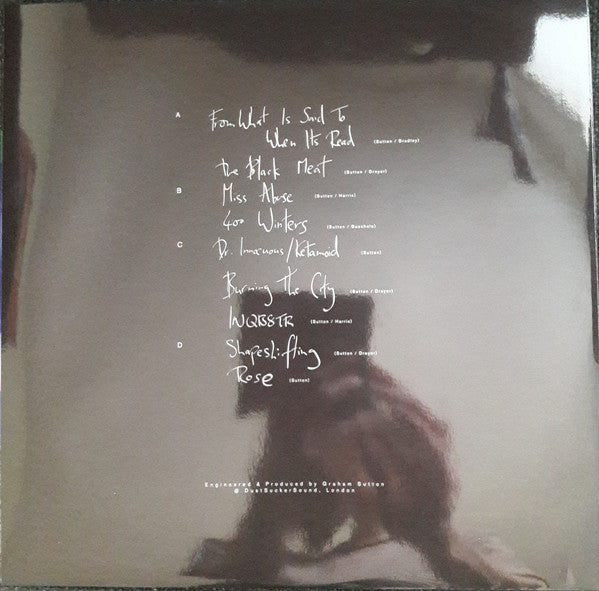 A
From What Is Said To
When Its Read (Sutton / Bradley)
The Black Meat (Sutton / Dreyer)
B
Miss Abuse (Sutton / Harris)
400 Winters (Sutton /
C
Dr. Innocuous/Ketamoid (Sutton)
Burning The City (Sutton / Dreyer)
INQB8TR (Sutton / Harris)
D
Shapeshifting (Sutton / Dreyer)
Rose (Sutton)
Engineered & Produced by Graham Sutton
@ DustSuckerSound, London